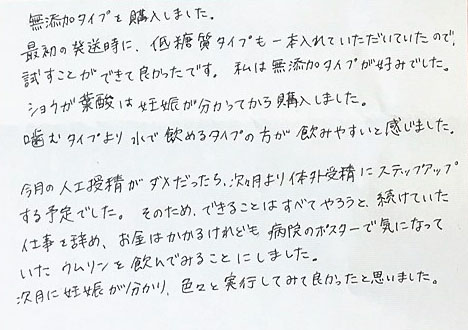 無添加タイプを購入しました。
最初の発送時に、低糖質タイプも一本入れていただいていたので、
試すことができて良かったです。私は無添加タイプが好みでした。
ショウが葉酸は妊娠が分かってから購入しました。
噛むタイプより水で飲めるタイプの方が飲みやすいと感じました。
今月の人工授精がダメだったら、次月より体外受精にステップアップ
する予定でした。そのため、できることはすべてやろうと、続けていた
仕事を辞め、お金はかかるけれども病院のポスターで気になって
いたウムリンを飲んでみることにしました。
次月に妊娠が分かり、色々と実行してみて良かったと思いました。